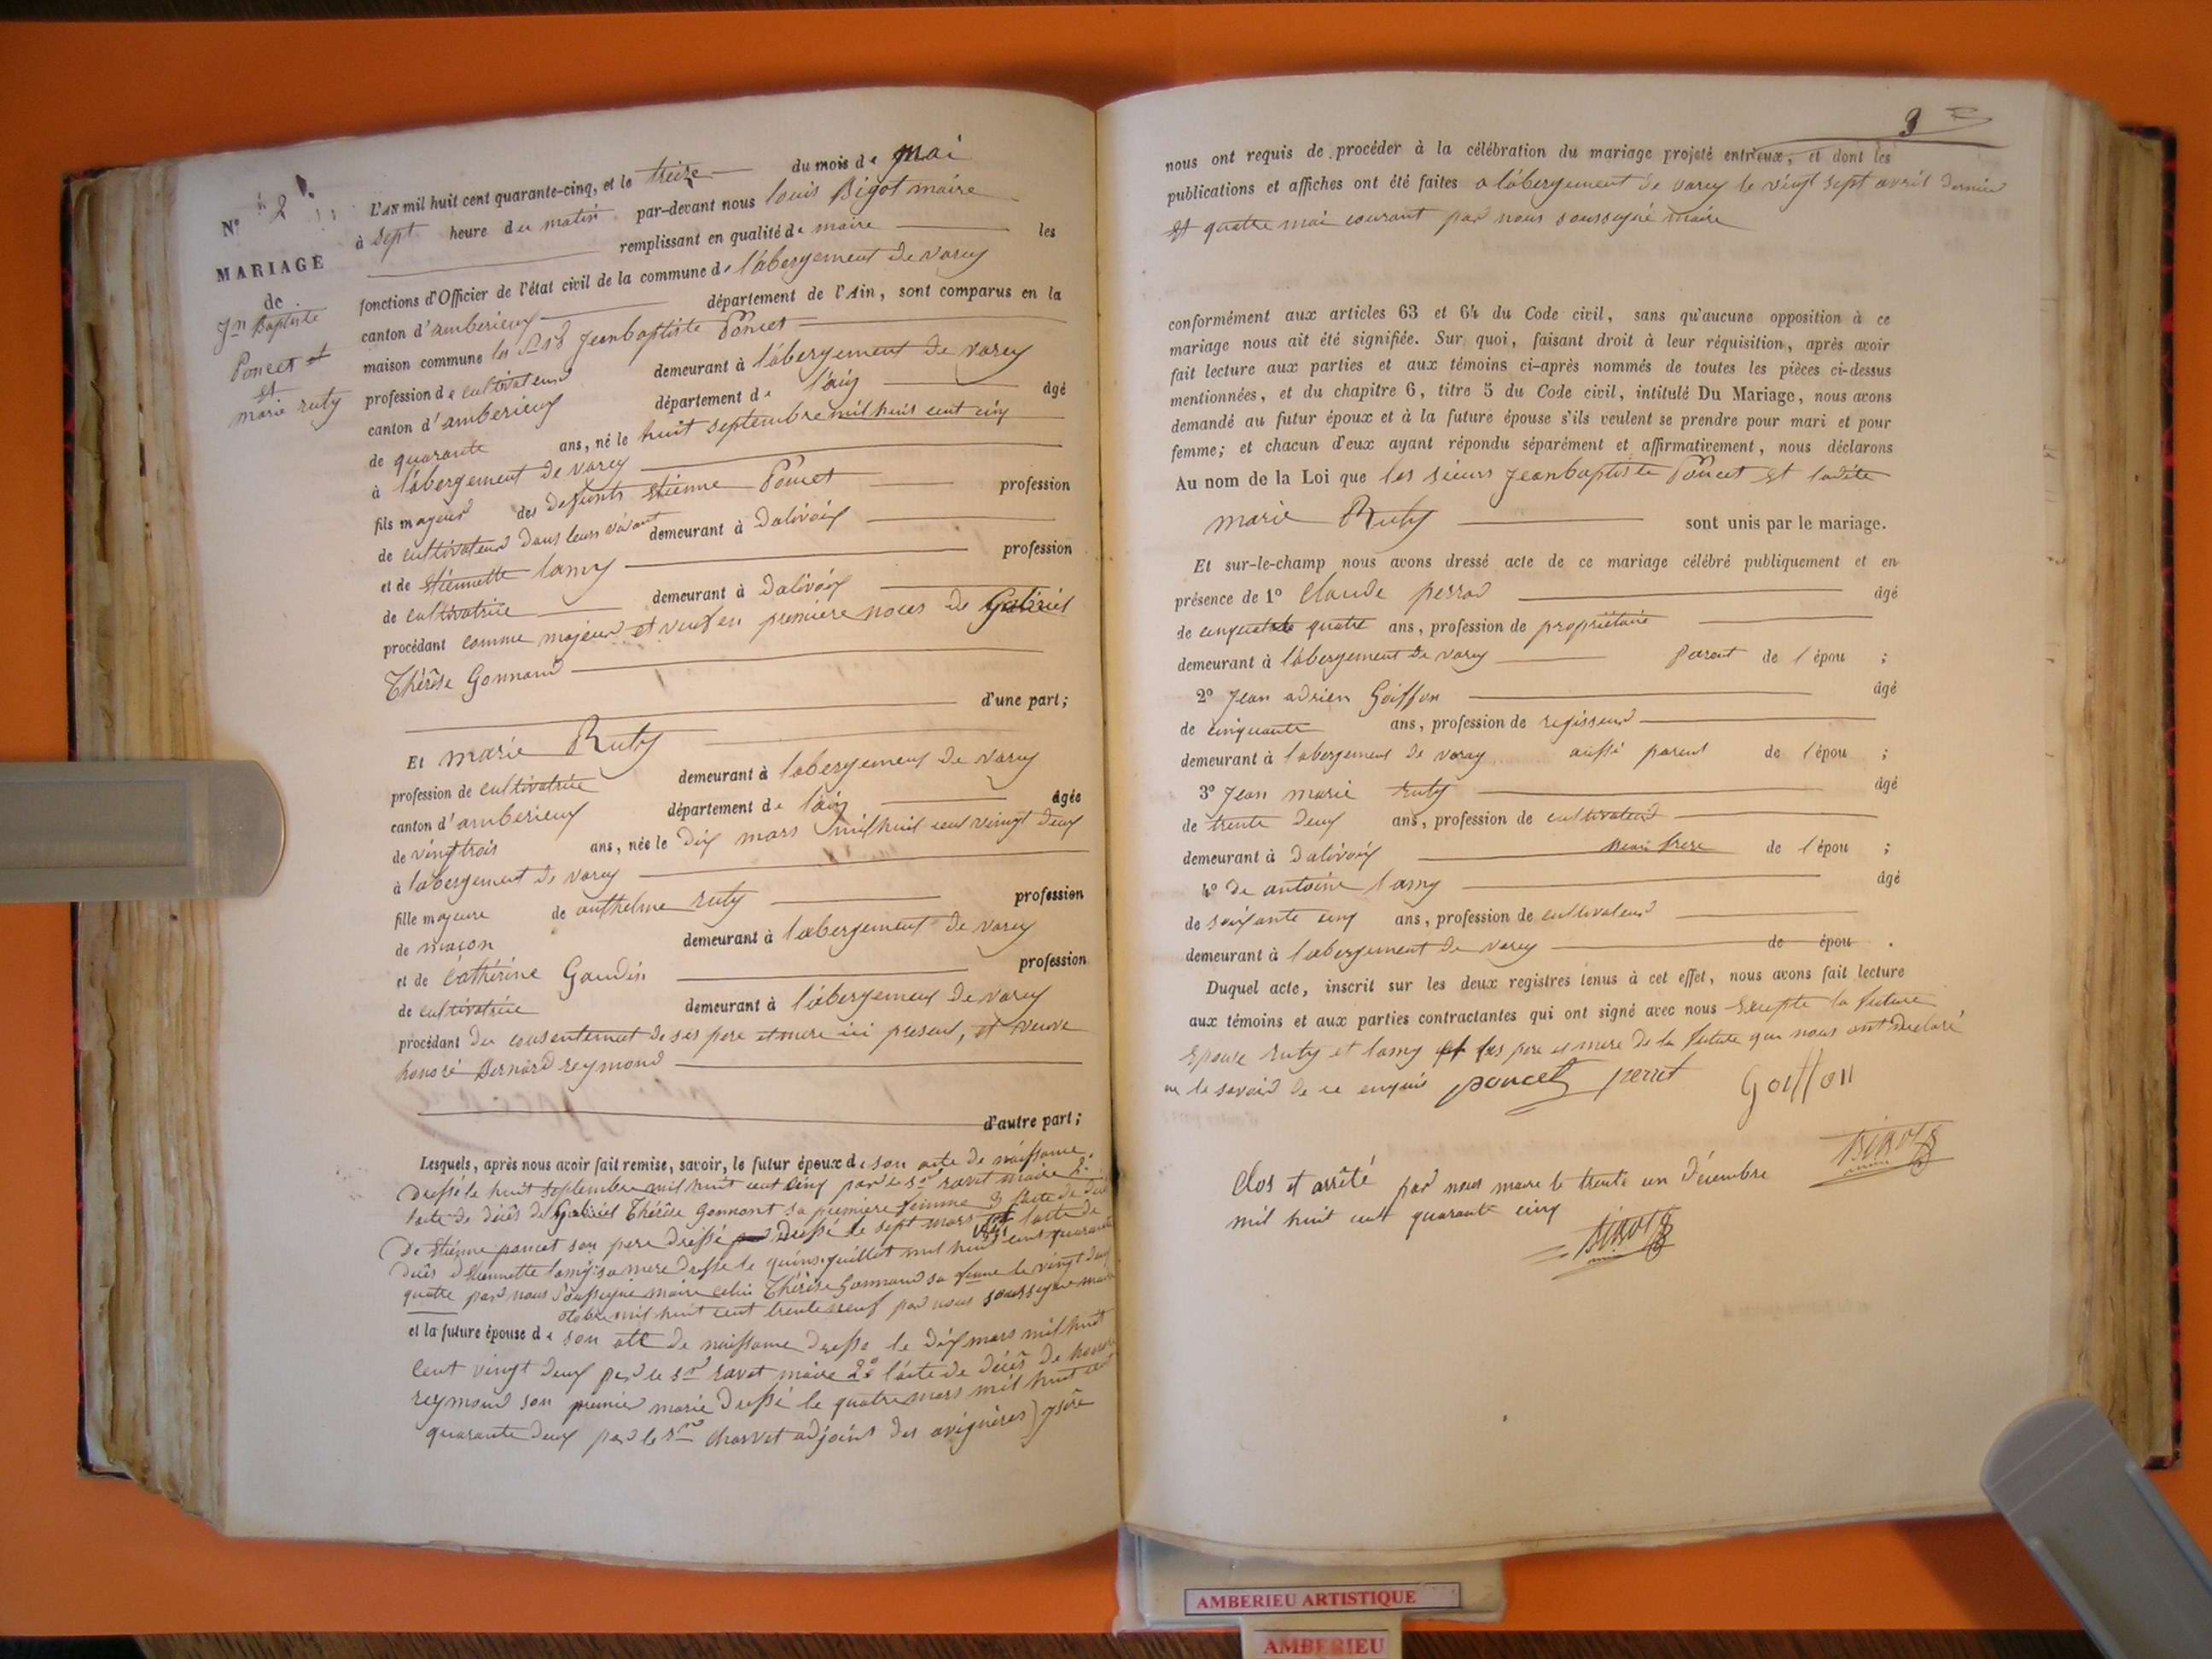 N° 2
MARIAGE
de
Jn Baptiste
Poncet
et
marie ruty
L'AN mil huit cent quarante-cinq, et le treize du mois de mai
à sept heure du matin par-devant nous louis Bigot maire
remplissant en qualité de maire les
fonctions d'Officier de l'état civil de la commune de l'abergement de varey
canton d'amberieux département de l'Ain, sont comparus en la
maison commune les Jeanbaptiste Poncet
profession de cultivateur demeurant à l'abergement de varey
canton d'amberieux département de l'ain âgé
de quarante ans, né le huit septembre mil huit cent cinq
à l'abergement de varey
fils majeur des defunts etienne Poncet profession
de cultivateur dans leur vivant demeurant à Dalivoix
et de etiennette lamy profession
de cultivatrice demeurant à Dalivoix
procédant comme majeur et veuf en premiere noces de Gabriel
Thérèse Gonnand
d'une part;
Et marie Ruty
profession de cultivatrice demeurant à l'abergement de varey
canton d'amberieux département de l'ain âgée
de vingt trois ans, née le dix mars mil huit cent vingt deux
à l'abergement de varey
fille majeure de anthelme ruty profession
de maçon demeurant à l'abergement de varey
et de Cathérine Gaudin profession
de cultivatrice demeurant à l'abergement de varey
procédant du consentement de ses pere et mere ici present, et veuve
honoré Bernard reymond
d'autre part;
Lesquels, après nous avoir fait remise, savoir, le futur époux de son acte de naissance
Dressé le huit septembre mil huit cent cinq par le sr ravet maire 2°
l'acte de décès de Gabriel Thérèse Gonnont sa premiere femme 3 l'acte de
De etiénne poncet son pere dressé le sept mars l'acte de
décès d'etiennette lamy sa mere dressé le quinse juillet mil huit cent quarante
quatre par nous soussigné maire celui Thérèse Gonnand sa femme le vingt deux
otobre mil huit cent trente neuf par nous soussigné maire
et la future épouse de son atte de naissance dressé le dix mars mil huit
cent vingt deux par le sr ravet maire 2° l'acte de décès de honoré
reymond son premier marie dressé le quatre mars mil huit cent
quarante deux par le sr charvet adjoint des avignères) ysère
3
nous ont requis de procéder à la célébration du mariage projeté entr'eux, et dont les
publications et affiches ont été faites a l'abergement de varey le vingt sept avril dernier
et quatre mai courant par nous soussigné maire
conformément aux articles 63 et 64 du Code civil, sans qu'aucune opposition à ce
mariage nous ait été signifiée. Sur quoi, faisant droit à leur réquisition, après avoir
fait lecture aux parties et aux témoins ci-après nommés de toutes les pièces ci-dessus
mentionnées, et du chapitre 6, titre 5 du Code civil, intitulé Du Mariage, nous avons
demandé au futur époux et à la future épouse s'ils veulent se prendre pour mari et pour
femme; et chacun d'eux ayant répondu séparément et affirmativement, nous déclarons
Au nom de la Loi que les sieurs Jeanbaptiste Poncet et ladite
marie Ruty sont unis par le mariage.
Et sur-le-champ nous avons dressé acte de ce mariage célébré publiquement et en
présence de 1° Claude perrad âgé
de cinquante quatre ans, profession de propriétaire
demeurant à l'abergement de varey Parent de l'épou ;
2° Jean adrien Goiffon âgé
de cinquante ans, profession de regisseur
demeurant à l'abergement de varey aussi parent de l'épou ;
3° Jean marie ruty âgé
de trente deux ans, profession de cultivateur
demeurant à Dalivoix beau frere de l'épou ;
4° de antoine lamy âgé
de soixante cinq ans, profession de cultivateur
demeurant à l'abergement de varey de épou .
Duquel acte, inscrit sur les deux registres tenus à cet effet, nous avons fait lecture
aux témoins et aux parties contractantes qui ont signé avec nous Excepte la future
epouse ruty et lamy et les pere et mere de la future qui nous ont declaré
ne le savoir de ce enquis poncet perret Goiffon
Bigot
Clos et arrêté par nous maire le trente un décembre
mil huit cent quarante cinq
Bigot
AMBERIEU ARTISTIQUE
AMBERIEU